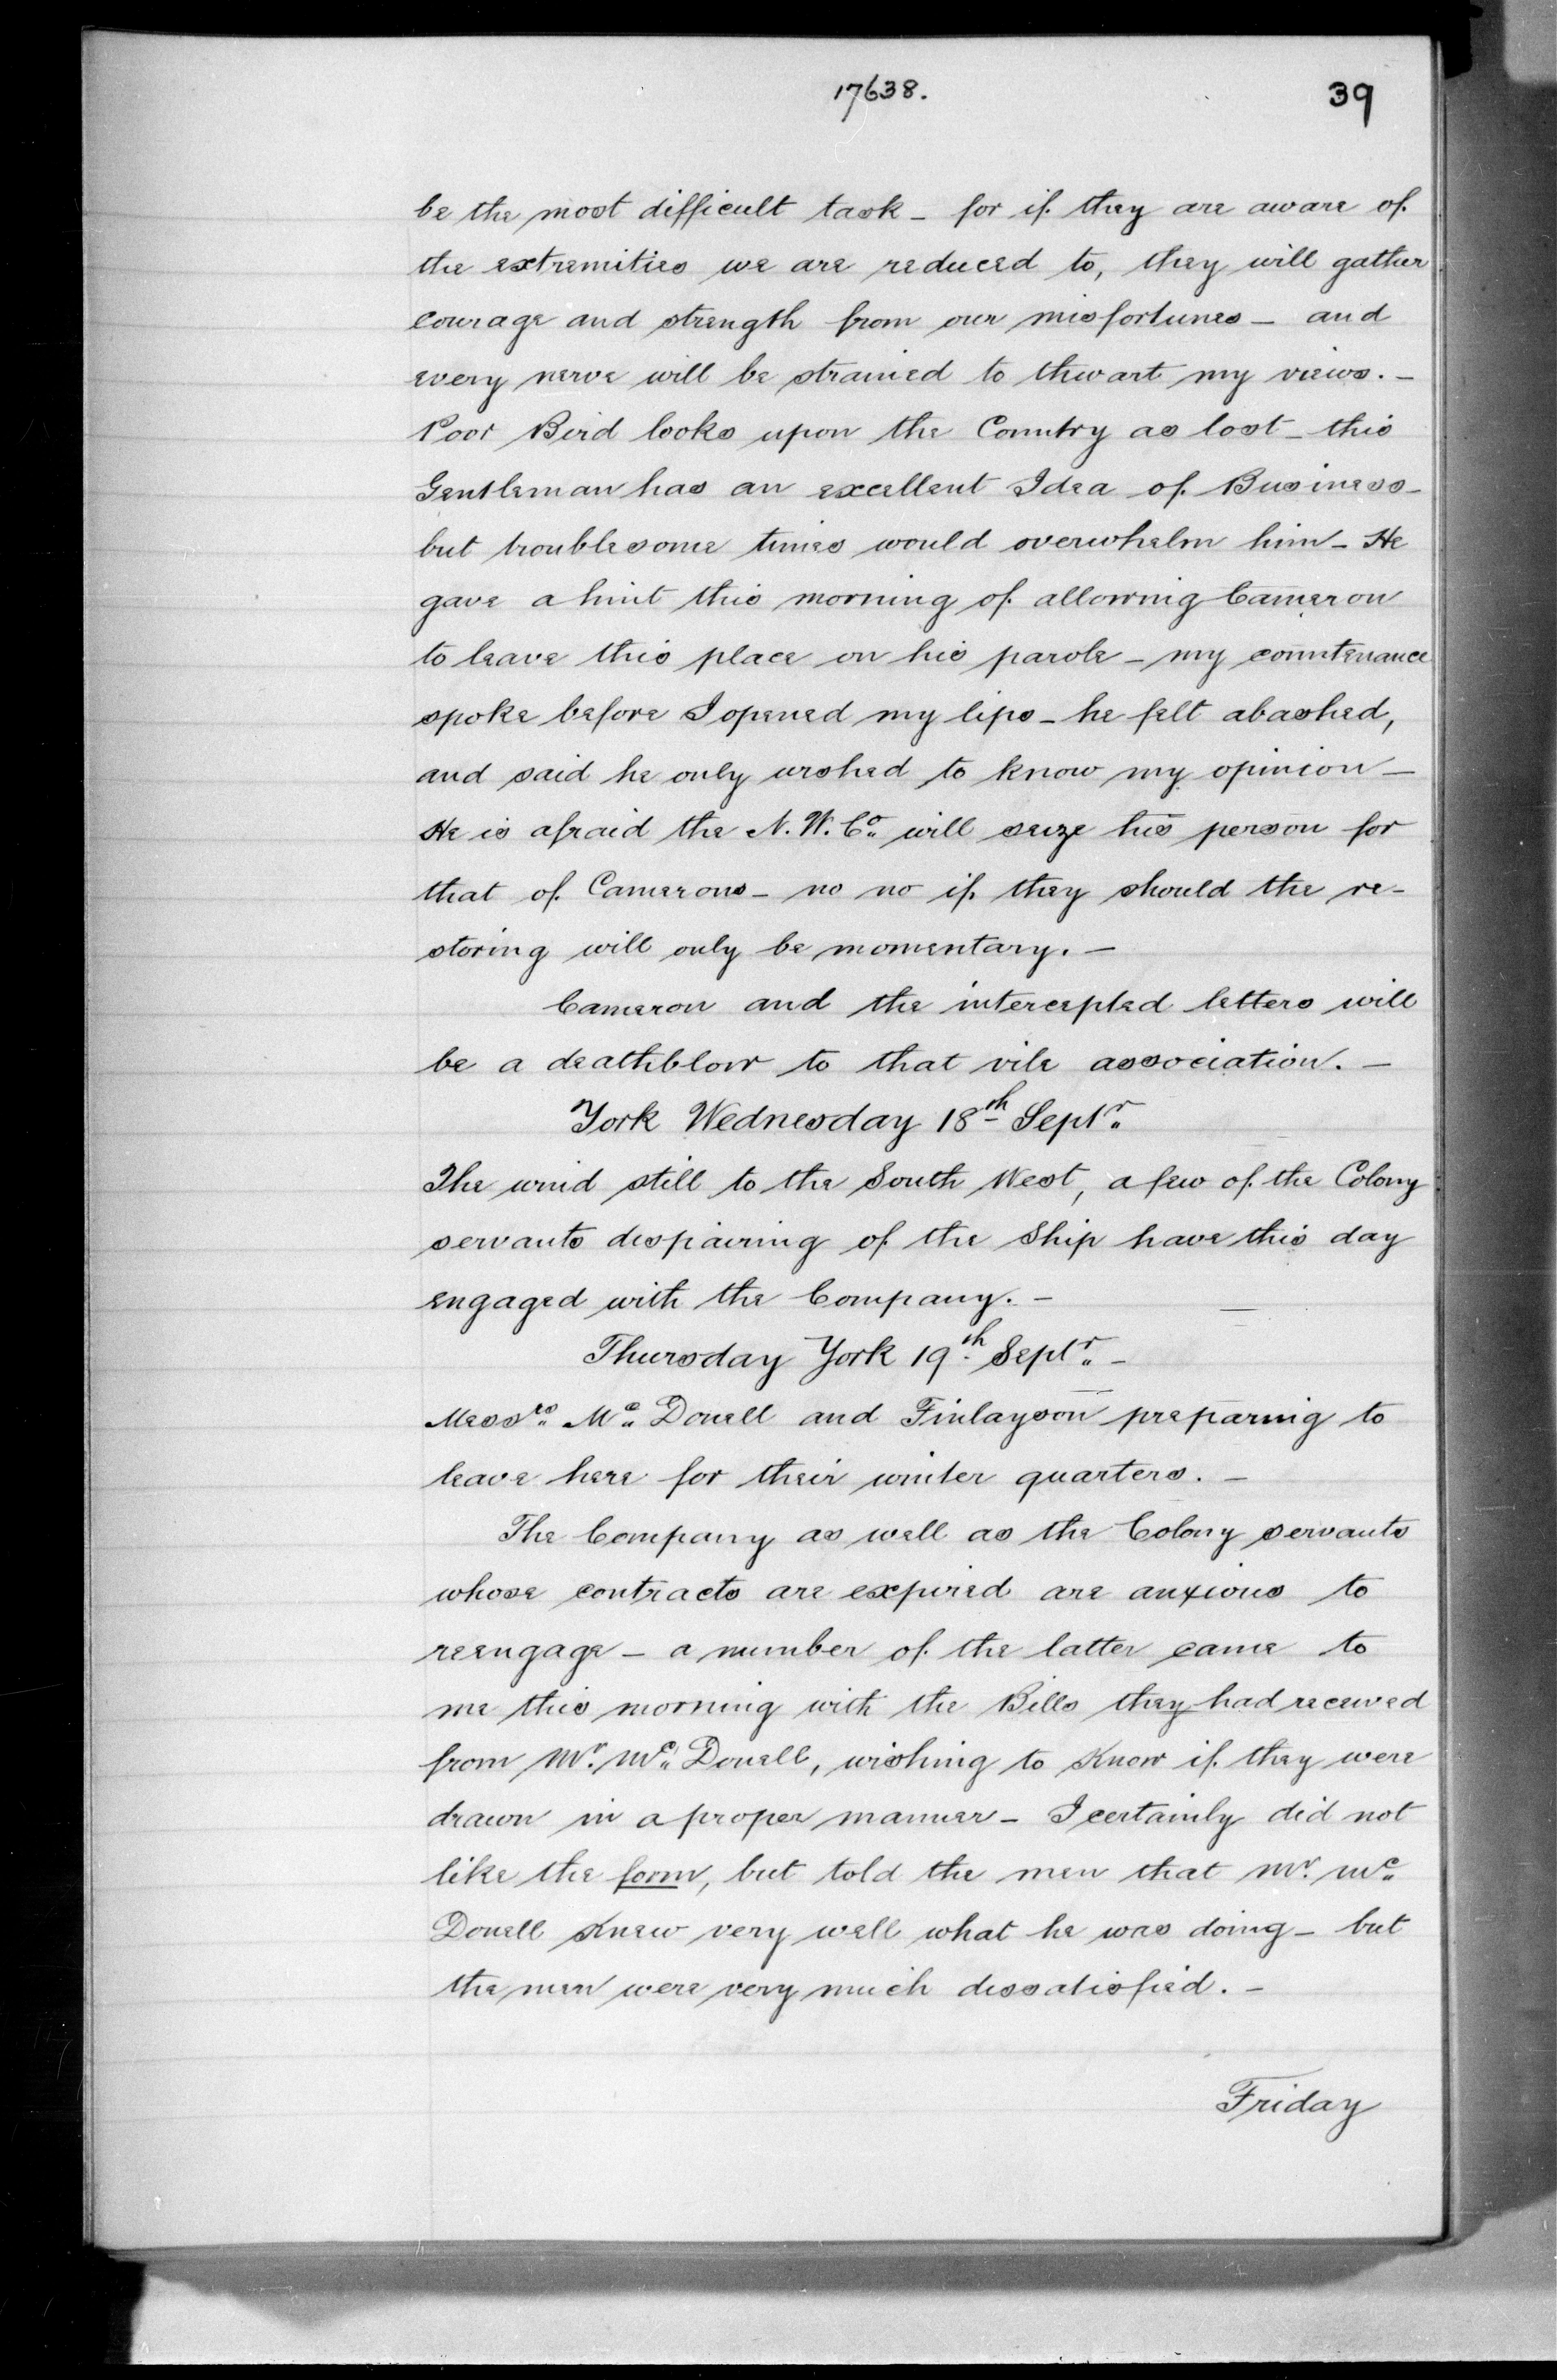 17638.
39
be the most difficult task - for if they are aware of
the extremities we are reduced to, they will gather
courage and strength from our misfortunes - and
every nerve will be strained to thwart my views. -
Poor Bird looks upon the Country as lost - this
Gentleman has an excellent Idea of Business -
but troublesome times would overwhelm him - He
gave a hint this morning of allowing Cameron
to leave this place on his parole - my countenance
spoke before I opened my lips - he felt abashed,
and said he only wished to know my opinion -
He is afraid the N. W. Co. will seize his person for
that of Camerons - no no if they should the re-
storing will only be momentary. -
Cameron and the intercepted letters will
be a deathblow to that vile association. -
York Wednesday 18th Septr.
The wind still to the South West, a few of the Colony
servants despairing of the Ship have this day
engaged with the Company. -
Thursday York 19th Septr. -
Messrs. Mc. Donell and Finlayson preparing to
leave here for their winter quarters. -
The Company as well as the Colony servants
whose contracts are expired are anxious to
reengage - a number of the latter came to
me this morning with the Bills they had received
from Mr. Mc. Donell, wishing to know if they were
drawn in a proper manner - I certainly did not
like the form, but told the men that Mr. Mc.
Donell knew very well what he was doing - but
the men were very much dissatisfied. -
Friday